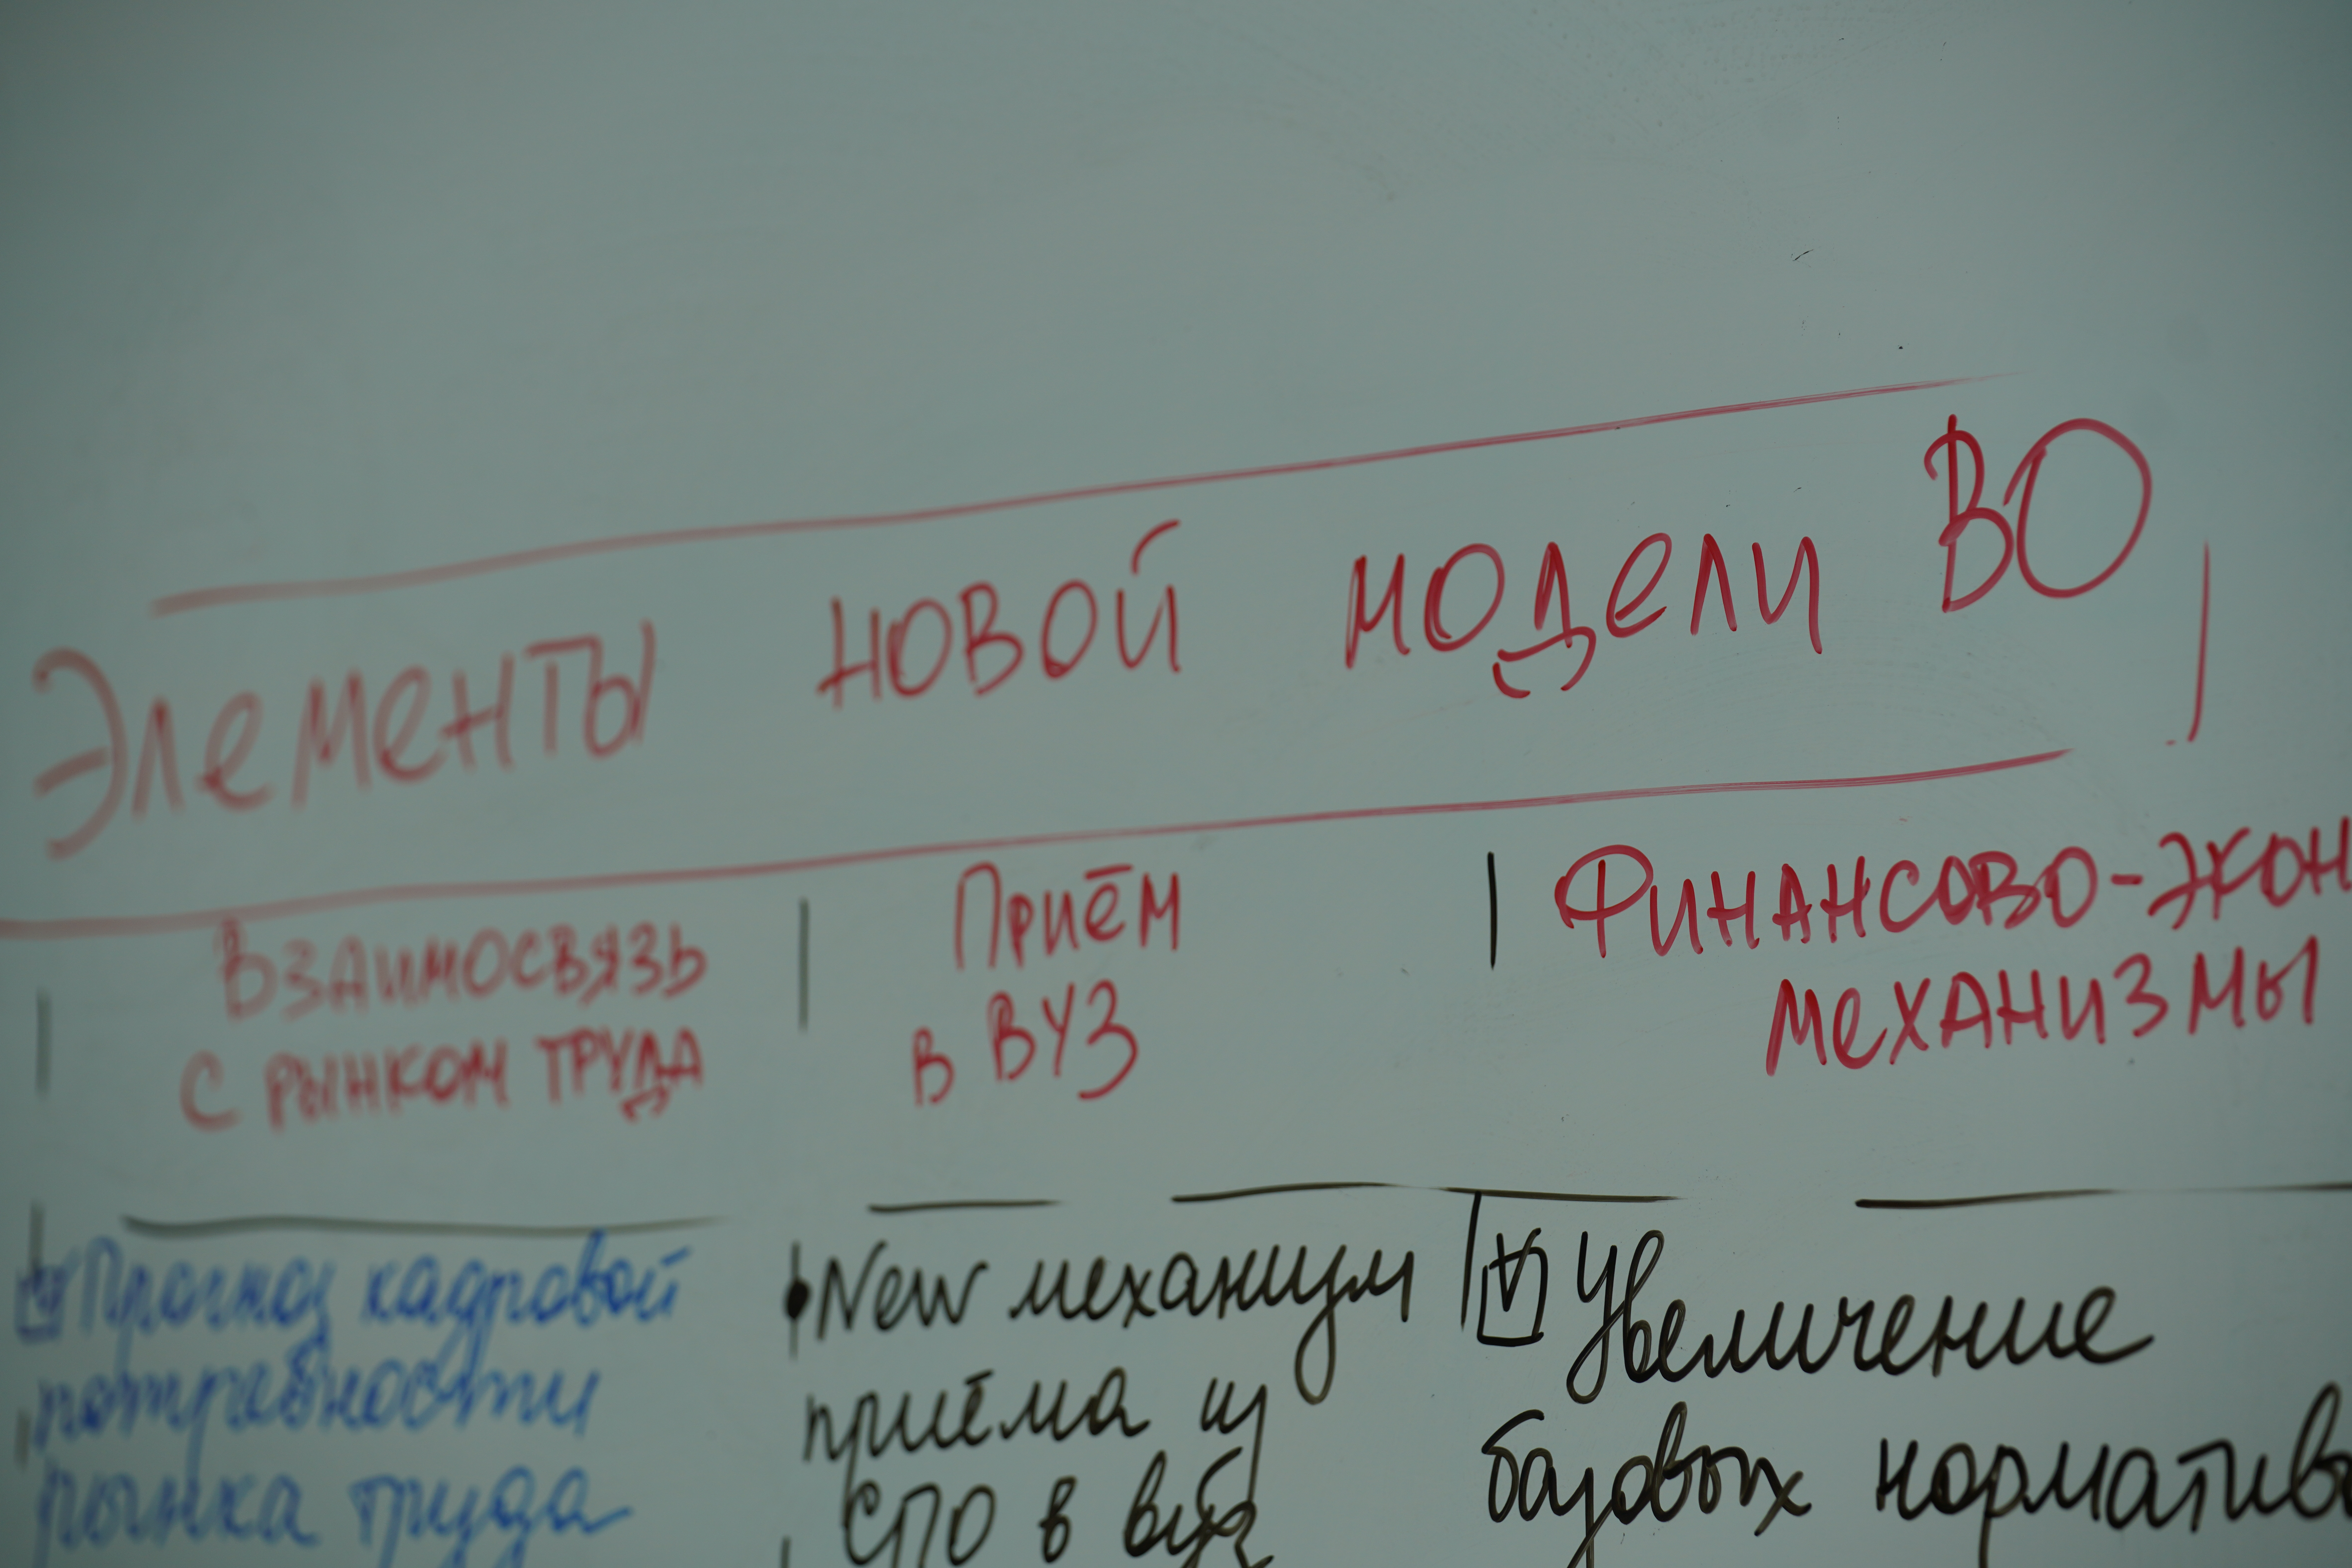 Элементы новой модели ВО
Взаимосвязь
с рынком труда
Приём
в ВУЗ
Финансово-экон
механизмы
Прогноз кадровой
потребности
рынка труда
• New механизм
приёма из
СПО в вуз
Увеличение
базовых норматив